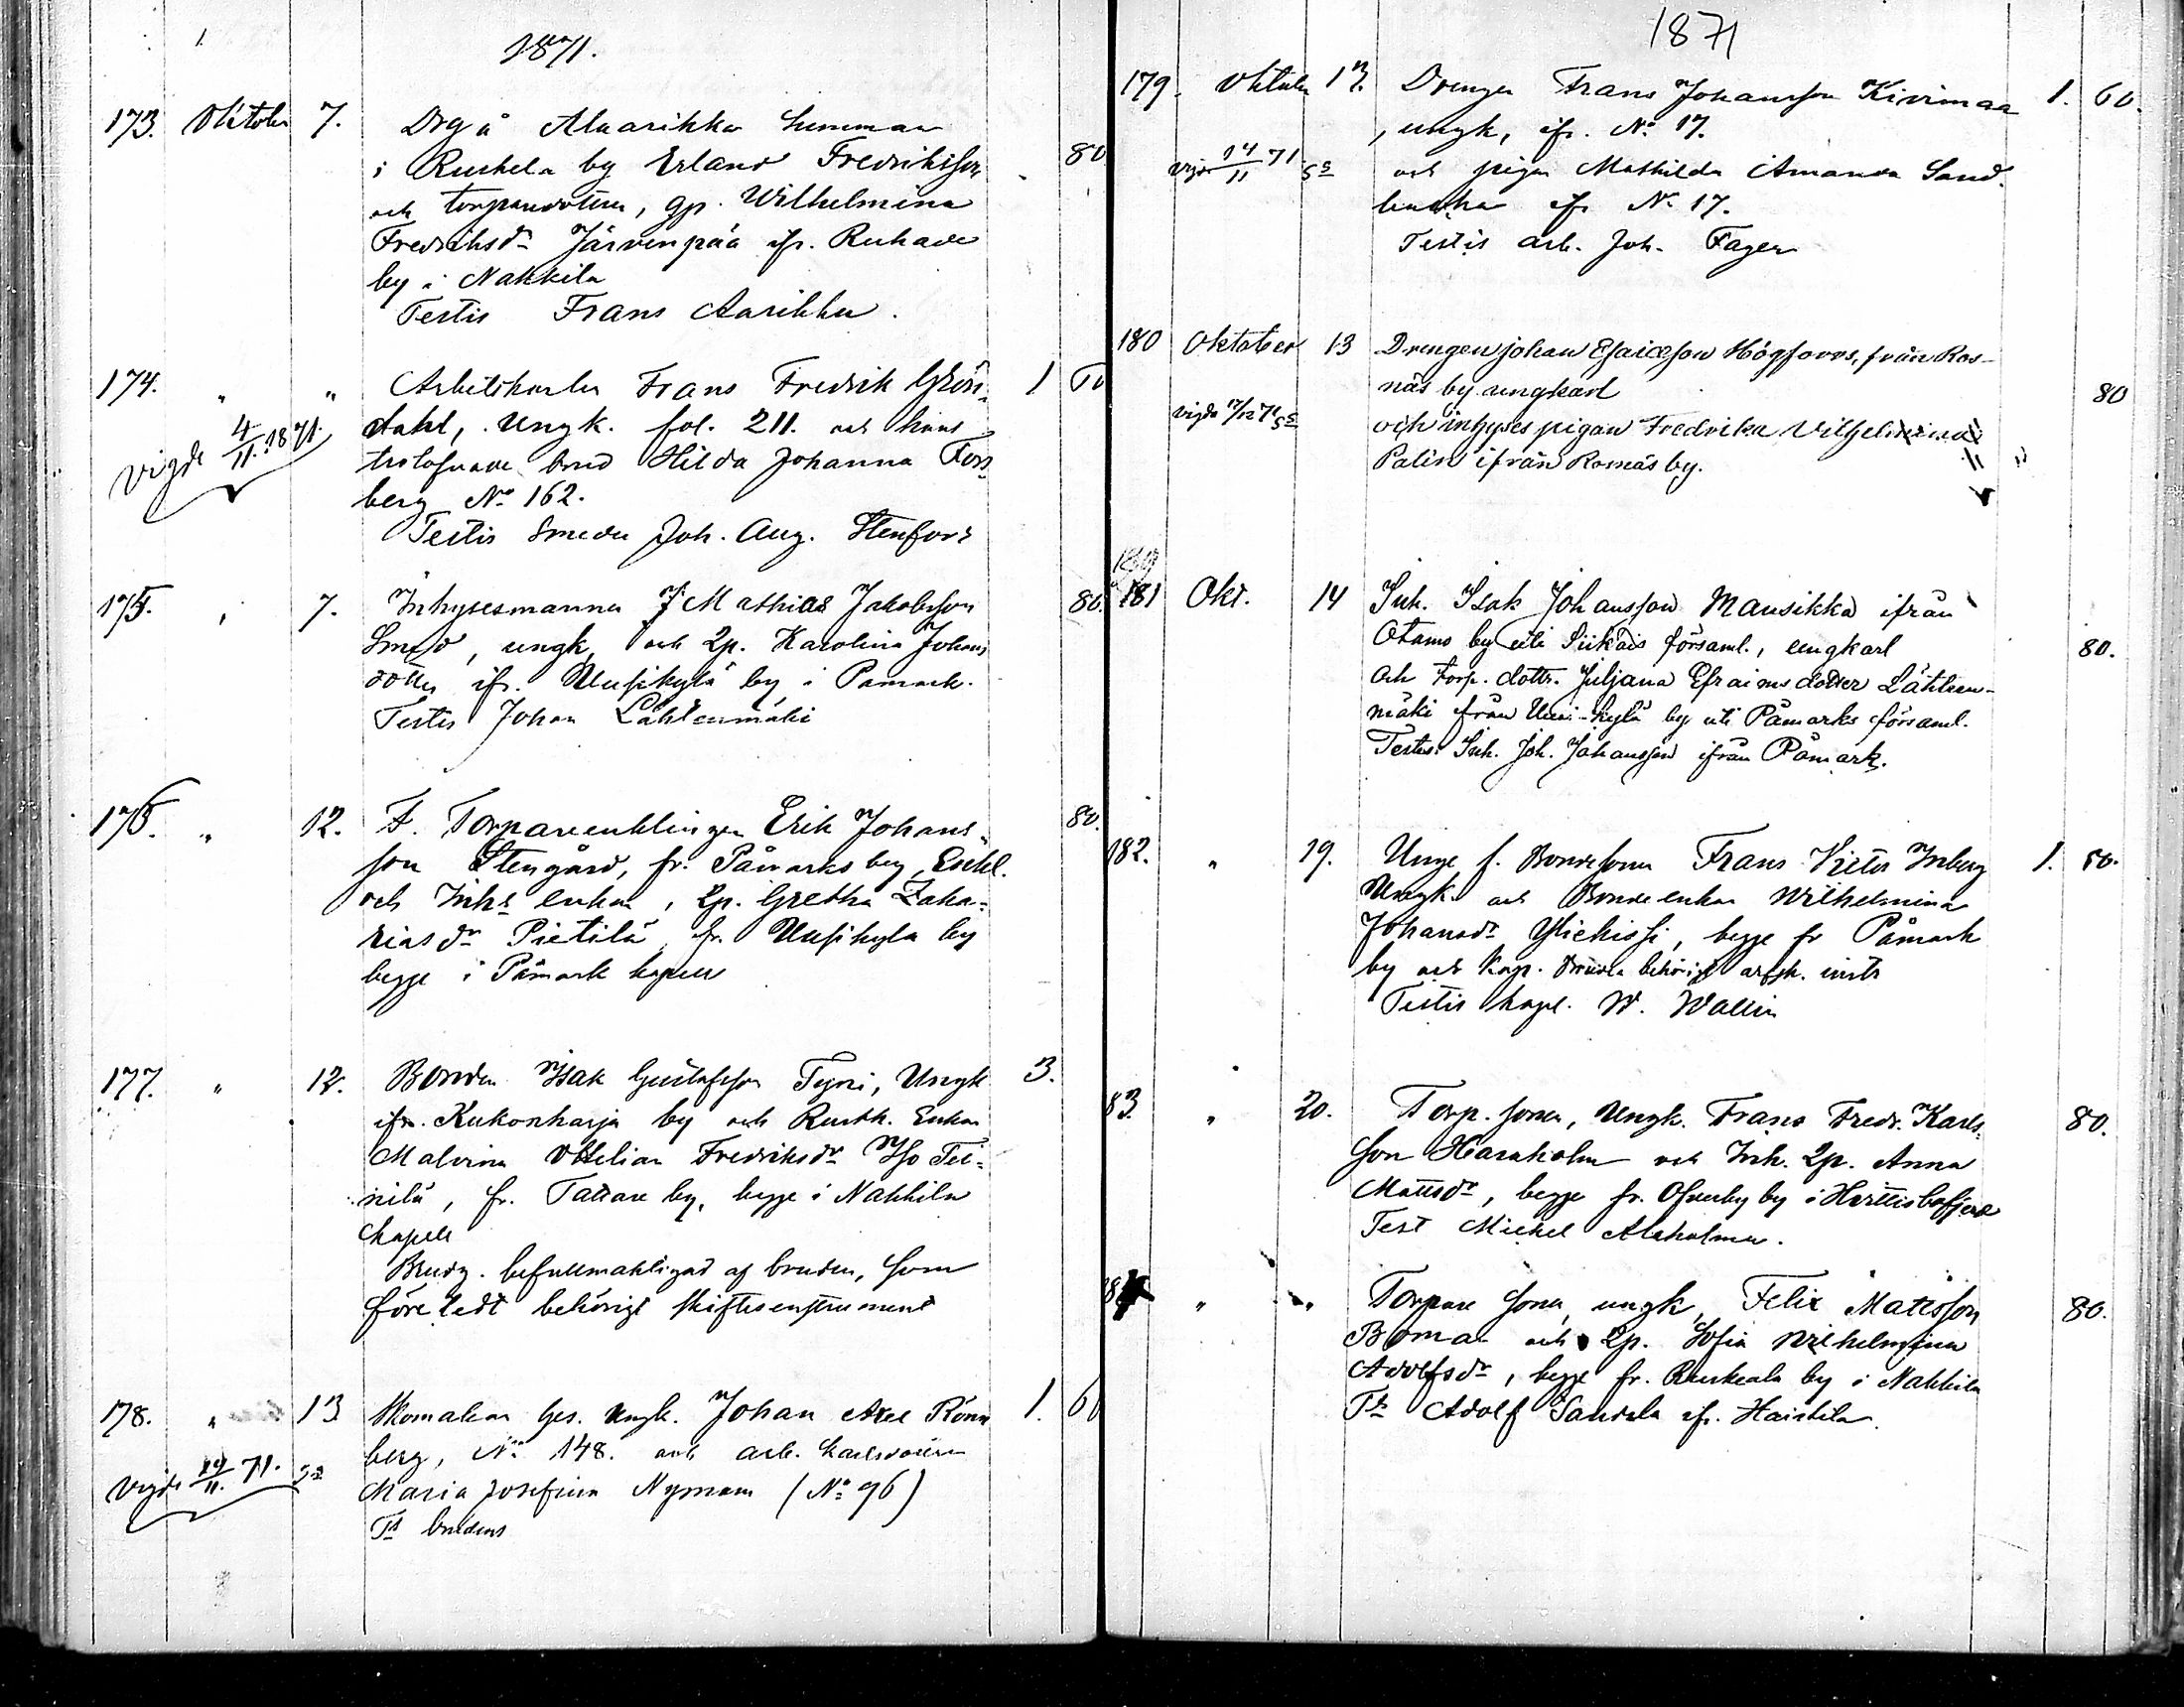 1871.
173. Oktober 7. Drg å Alaarikka hemman
i Ruskela by Erland Fredriksson 80
och torparedottren, qp. Wilhelmina
Fredriksdr Järvenpää ifr.
by i Nakkila
Testis Frans Aarikka.
174. " " Arbetskarlen Frans Fredrik Grön- 1 60
dahl, Ungk. fol. 211. och hans
Vigde 4/11.1871.
trolofvade brud Hilda Johanna Fors
berg No 162.
Testis Smeden Joh. Aug. Stenfors
175. " 7. Inhysesmannen Mathias Jakobsson 80.
Smed, ungk, och qp. Karolina Johans
dotter ifr. Uusikylä by i Pamark.
Testis Johan Lähteenmäki
176. " 12. F. Torpareenklingen Erik Johans- 80.
son Stengård, fr. Påmarks by, Enkl.
och Inhs enkan, qp. Gretha Zaka-
riasdr Pietilä, fr. Uusikyla by
begge i Påmark kapell
177. " 12. Bonden Isak Gustafsson Tyni, Ungk 3.
ifr. Kukonharja by och Rusth. Enkan
Malvina Ottilian Fredriksdr Iso Tei-
nilä, fr. Tattare by, begge i Nakkila
Kapell
Brudg. befullmäktigad af bruden, som
företedt behörigt skiftesinstrument
178. " 13 Skomakar Ges. Ungk. Johan Axel Rönn 1. 60
berg, No 148. och arb. karlsdottren
Vigde 19/11. 71.
Maria Josefina Nyman (No 96)
Ts brudens
1871
179. Oktober 13. Drengen Frans Johansson Kivimaa 1. 60.
, ungk, ifr. No 17.
Vigde 14/11 71.
och pigan Mathilda Amanda Sand-
backa ifr No 17.
Testis arb. Joh. Fager
180 Oktober 13 Drengen Johan Esaiasson Högfors, från Ros-
näs by ungkarl 80
vigda 17/12 71
och inhyses pigan Fredrika Vilhelmina
Palin ifrån Rosnäs by.
181 Okt. 14 Inh. Isak Johansson Mansikka ifrån
Otamo by uti Siikais församl., ungkarl 80.
och torp. dottr. Juljana Efraims dotter Lähteen-
mäki från Uusi-kylä by uti Påmarks församl.
Testis: Inh. Joh. Johansson ifrån Påmark.
182. " 19. Unge f. Bondesonen Frans Victor Inberg 1. 60.
Ungk. och Bondeenkan Wilhelmina
Johansdr Ylickissi, begge fr Påmark
by och kap. behörigt arfsk. instr
Testis kapl. W. Wallin
83. " 20. Torp. sonen, Ungk. Frans Fredr. Karls- 80.
son Haraholma och Inh. qp. Anna
Mattsdr, begge fr. Ofverby by i Hvittisbofjerd
Test Mickel Alaholma.
" " Torpare Sonen, ungk, Felix Mattsson 80.
Boman och qp. Sofia Wilhelmina
Adolfsdr, begge fr. Ruskeala by i Nakkila
Ts Adolf Sandala ifr. Haistila.